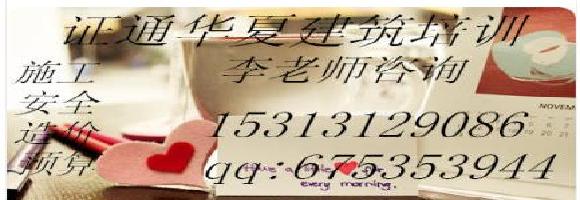 证通华夏建筑培训
李老师咨询
施工
安全
造价
预算
15313129086
qq:675353944
Have a little
every morning.
NOVEM